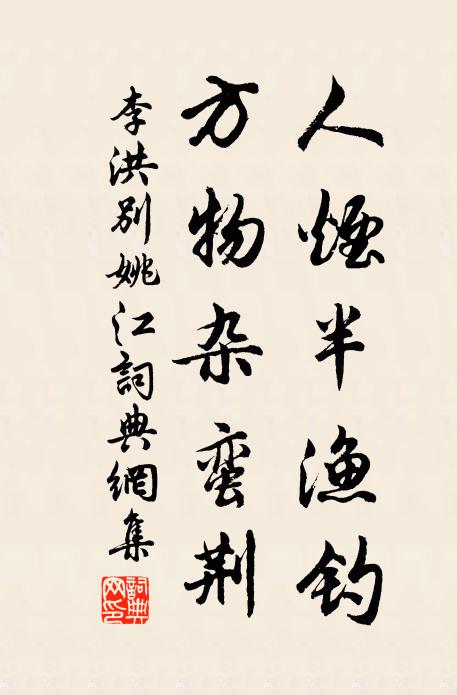 人煙半渔钓
方物杂蛮荆
李洪别姚江詞典網集
詞典网印